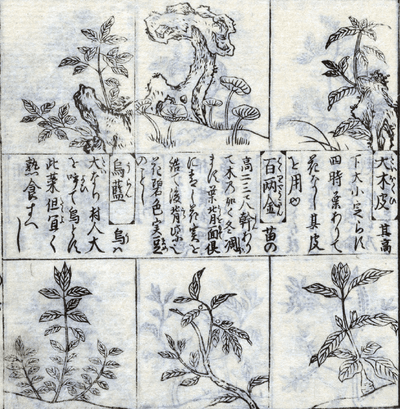 大木皮 其高
下大小定らず
四時葉ありて
花なし其皮
を用ゆ
百両金 苗の
高二三尺幹あり
て木乃如く冬凋
まず葉背面倶
に青し花実を
結て後背紫
花碧色実豆
のごとし
烏藍 烏ハ
大なり村人大
を呼て烏とす
此葉但宜く
熟食すべし